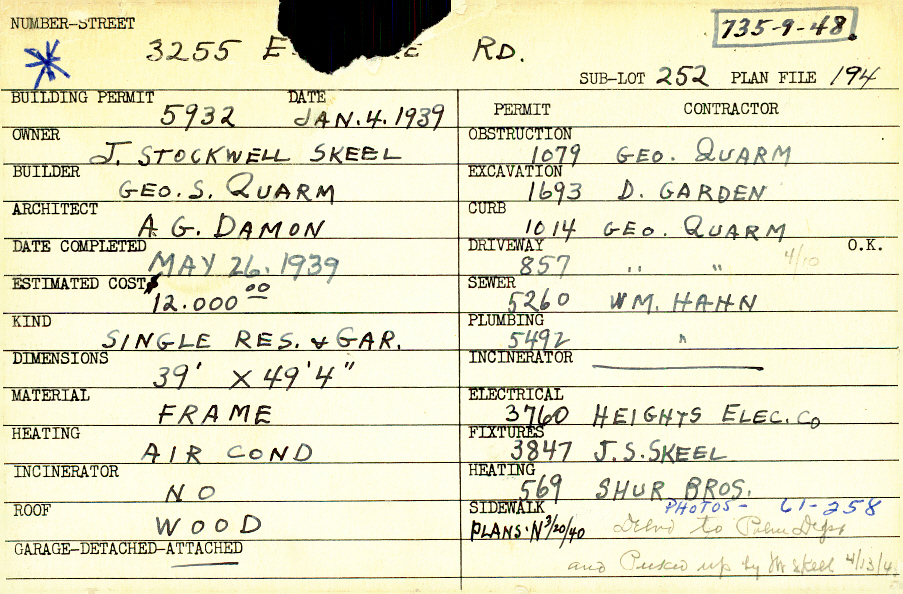 NUMBER-STREET
3255 E RD.
735-9-48
SUB-LOT 252 PLAN FILE 194
BUILDING PERMIT DATE
5932 JAN. 4. 1939
OWNER
J. STOCKWELL SKEEL
BUILDER
GEO. S. QUARM
ARCHITECT
A G. DAMON
DATE COMPLETED
MAY 26. 1939
ESTIMATED COST $
12.000 00
KIND
SINGLE RES. & GAR.
DIMENSIONS
39' X 49'4"
MATERIAL
FRAME
HEATING
AIR COND
INCINERATOR
NO
ROOF
WOOD
GARAGE-DETACHED-ATTACHED
PERMIT CONTRACTOR
OBSTRUCTION
1079 GEO. QUARM
EXCAVATION
1693 D. GARDEN
CURB
1014 GEO. QUARM
DRIVEWAY O.K.
857 " " 4/10
SEWER
5260 WM. HAHN
PLUMBING
5492 "
INCINERATOR
ELECTRICAL
3760 HEIGHTS ELEC. CO
FIXTURES
3847 J.S. SKEEL
HEATING
569 SHUR BROS.
SIDEWALK PHOTOS - 61-258
PLANS-N 3/20/40 to
and Picked up by Mr Skeel 4/13/4